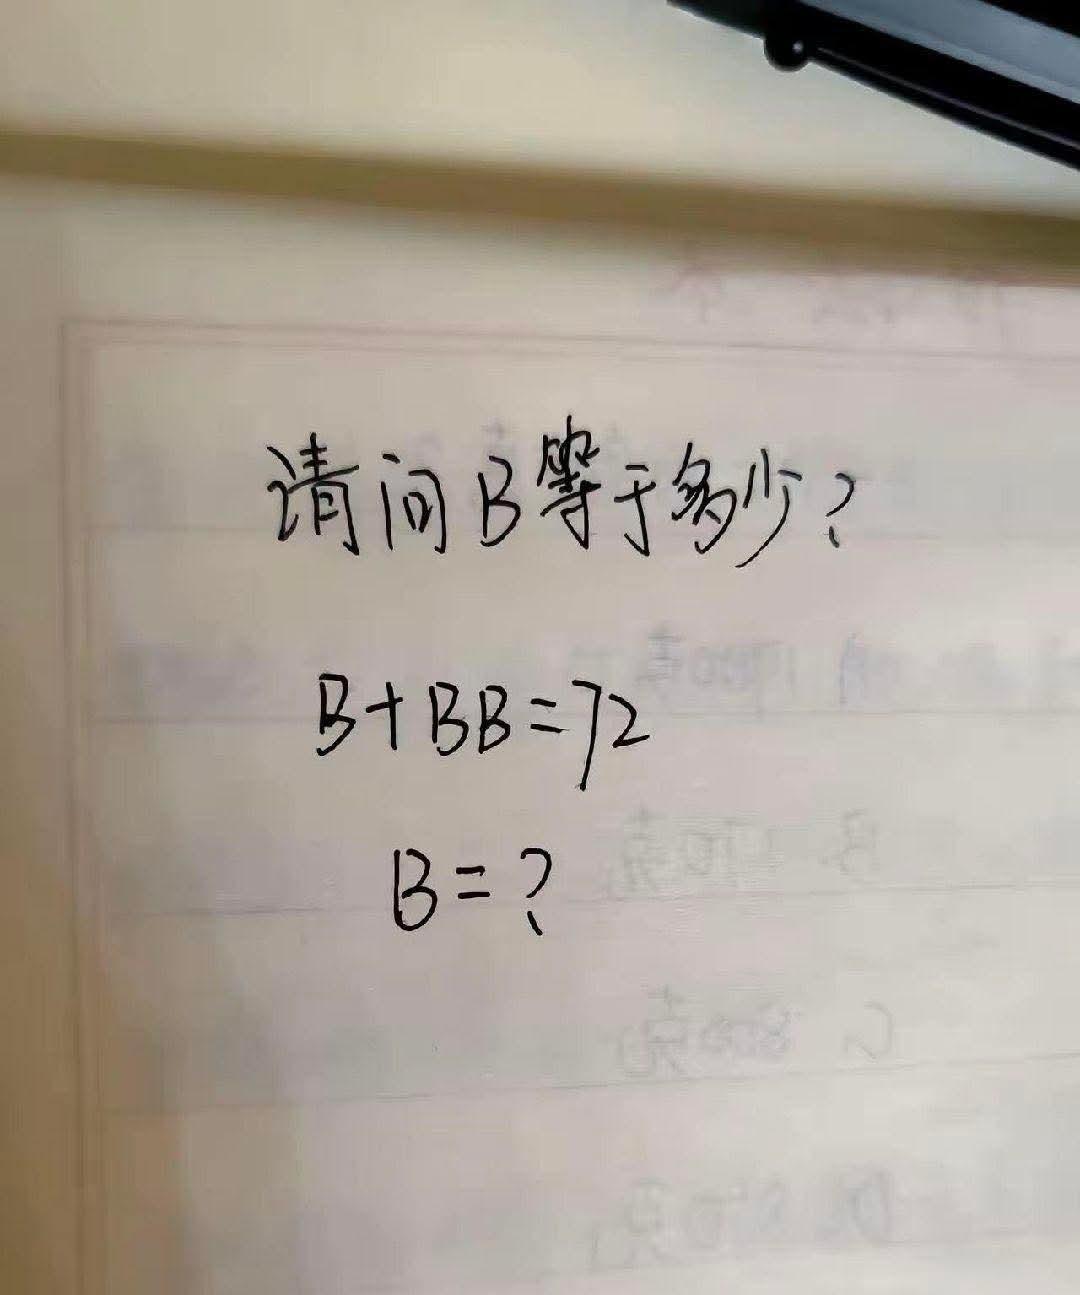 请问B等于多少?
B+BB=72
B=?